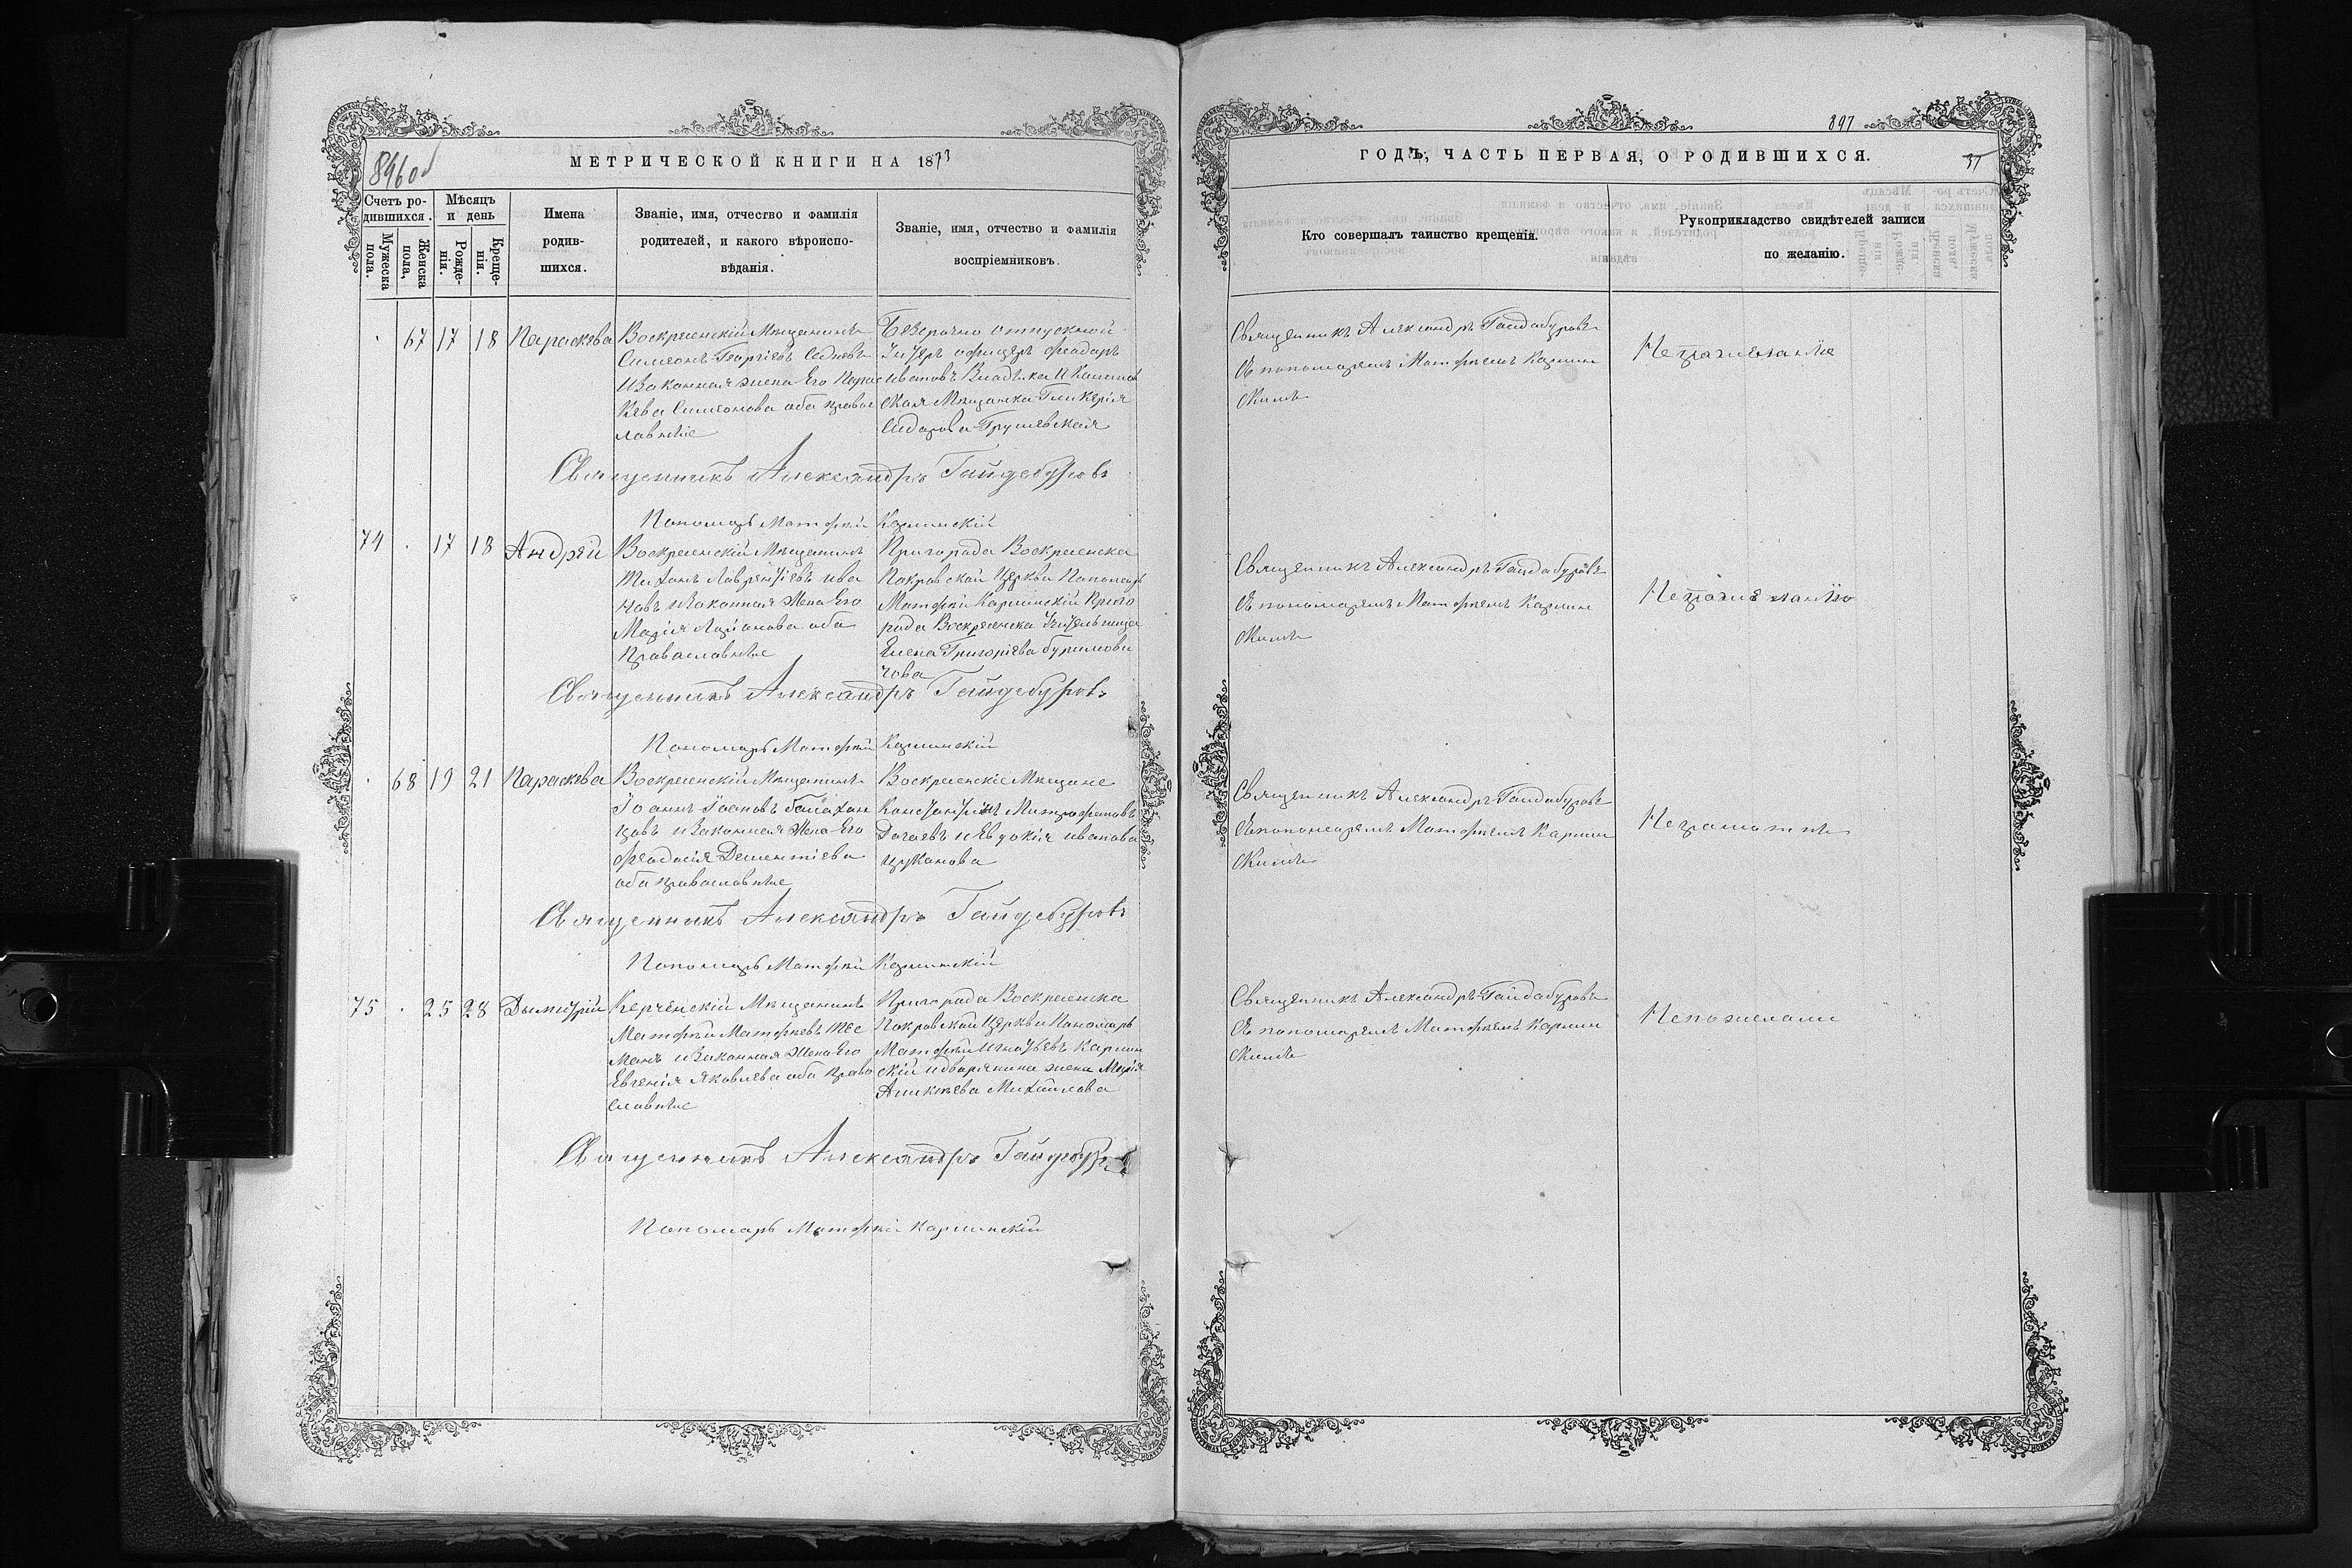 896 об
МЕТРИЧЕСКОЙ КНИГИ НА 1873
Счетъ ро-
дившихся.
Мужеска
пола.
Женска
пола,
Мѣсяцъ
и день
Рожде-
нія.
Креще-
нія.
Имена
родив-
шихся.
Званіе, имя, отчество и фамилія
родителей, и какого вѣроиспо-
вѣданія.
Званіе, имя, отчество и фамилія
воспріемниковъ.
67 17 18 Параскева
Воскресенскій Мѣщанинъ
Симеонъ Георгіевъ
и Законная жена Его Парас
кева Симеонова оба Право
славные
Безсрочно отпускной
Унтеръ офицеръ Феодоръ
Ивановъ
ская Мѣщанка Гликерія
Сидорова Грушевская
Священникъ Александръ Гайдебуровъ
Пономарь Матфей Карминскій
74 17 18 Андрей
Воскресенскій Мѣщанинъ
Тихонъ Лаврентіевъ Ива
новъ и Законная Жена Его
Марія оба
Православные
Пригорода Воскресенска
Покровской Церкви Пономарь
Матфей Карминскій Приго
рода Воскресенска
Елена Григоріева Буримови
чова
Священникъ Александръ Гайдебуровъ
Пономарь Матфей Карминскій
68 19 21 Параскева
Воскресенскій Мѣщанинъ
Іоаннъ
и Законная Жена Его
Феодосія Дементіева
оба православные
Воскресенскіе Мѣщане
Константинъ Митрофановъ
и Евдокія Иванова
Цуканова
Священникъ Александръ Гайдебуровъ
Пономарь Матфей Карминскій
75 25 28 Дымитрій
Керченскій Мѣщанинъ
Матфей Матфеевъ
и Законная Жена Его
Евгенія Яковлева оба Право
славные
Пригорода Воскресенска
Покровской Церкви Пономарь
Матфей Игнатьевъ Кармин
скій и дворянина жена Марія
Михайлова
Священникъ Александръ
Пономарь Матфей Карминскій
897
37
ГОДЪ, ЧАСТЬ ПЕРВАЯ, О РОДИВШИХСЯ.
Кто совершалъ таинство крещенія.
Рукоприкладство свидѣтелей записи
по желанію.
Священникъ Александръ Гайдабуровъ
съ пономаремъ Матфеемъ Кармин
скимъ
Священникъ Александръ Гайдабуровъ
съ пономаремъ Матфеемъ Кармин
скимъ
Священникъ Александръ Гайдабуровъ
съ пономаремъ Матфеемъ Кармин
скимъ
Неграмотны
Священникъ Александръ Гайдабуровъ
съ пономаремъ Матфеемъ Кармин
скимъ
Непожелали